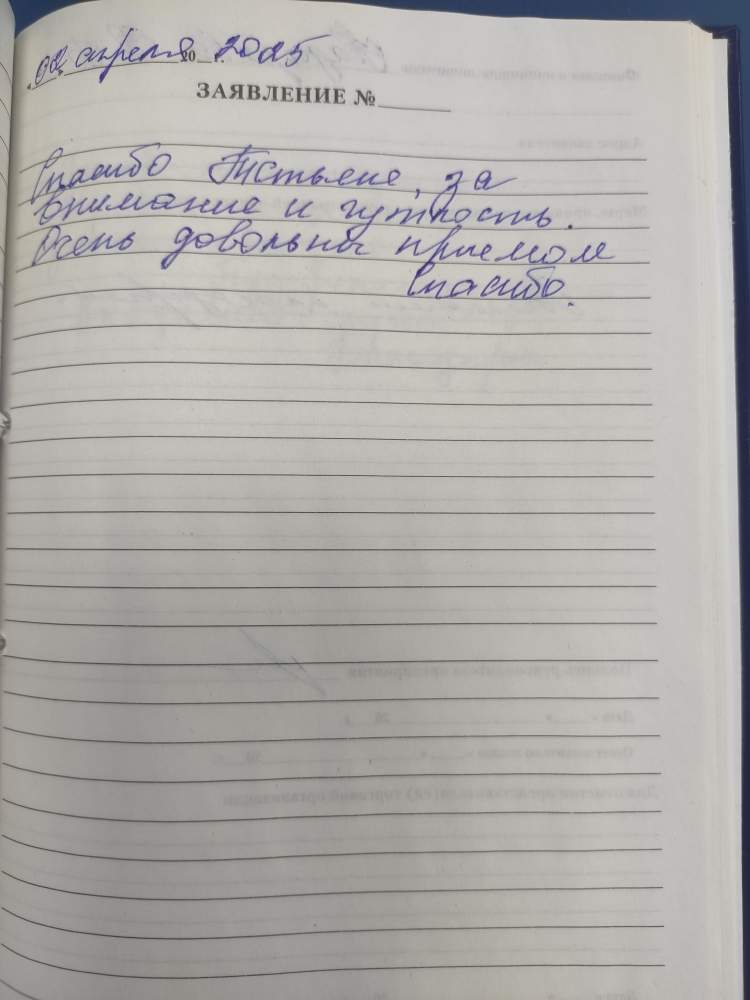 02 апреля 20 2025
ЗАЯВЛЕНИЕ №
Спасибо Татьяне, за
внимание и чуткость.
Очень довольны приемом
Спасибо.